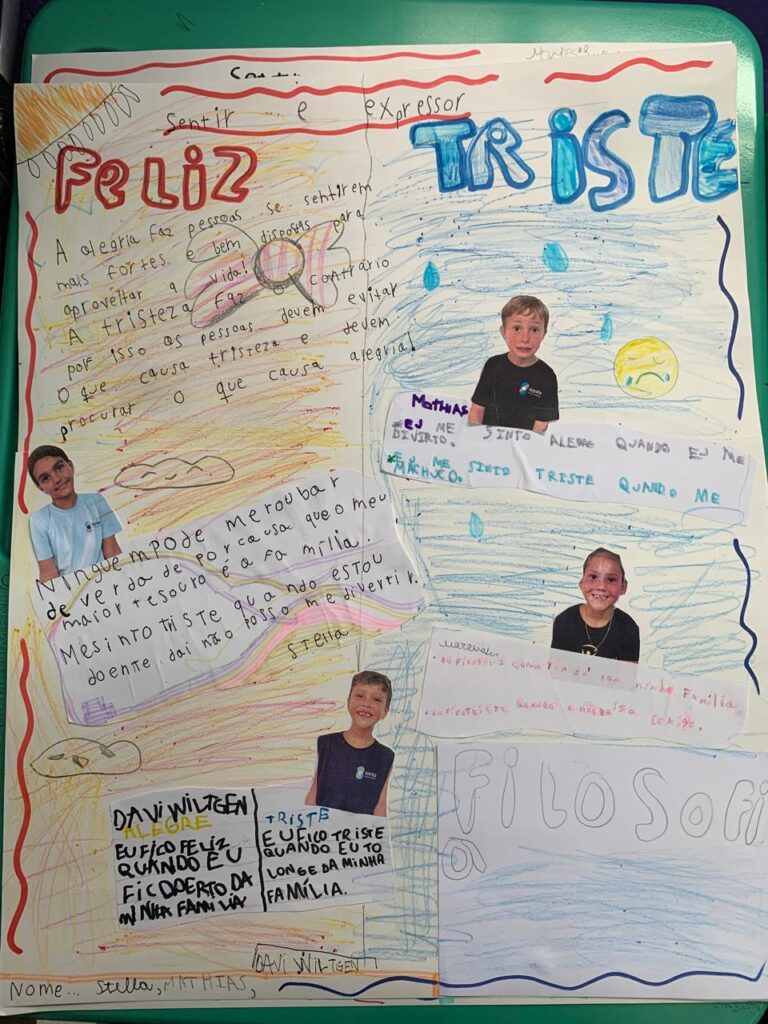 Sentir e expressor
FELIZ
TRISTE
A alegria faz pessoas se sentirem
mais fortes e bem dispostas para
aproveitar a vida!
A tristeza faz o contrário
por isso as pessoas devem evitar
O que causa tristeza e devem
procurar o que causa alegria!
MATHIAS
EU ME SINTO ALEGRE QUANDO EU ME
DIVIRTO.
EU ME SINTO TRISTE QUANDO ME
MACHUCO.
Ninguem pode me roubar
de verda de por causa que o meu
maior tesouro é a fa mília.
Me sinto triste quando estou
doente, dai não posso me divertir.
Stella
EU FICO FELIZ QUANDO com minha família
EU FICO TRISTE QUANDO A comigo.
FILOSOFI
a
DAVI WILTGEN
ALEGRE
EU FICO FELIZ
QUANDO EU
FICO PERTO DA
MINHA FAMILIA
TRISTE
EU FICO TRISTE
QUANDO EU TO
LONGE DA MINHA
FAMÍLIA.
DAVI WILTGEN
Nome... Stella, MATHIAS,